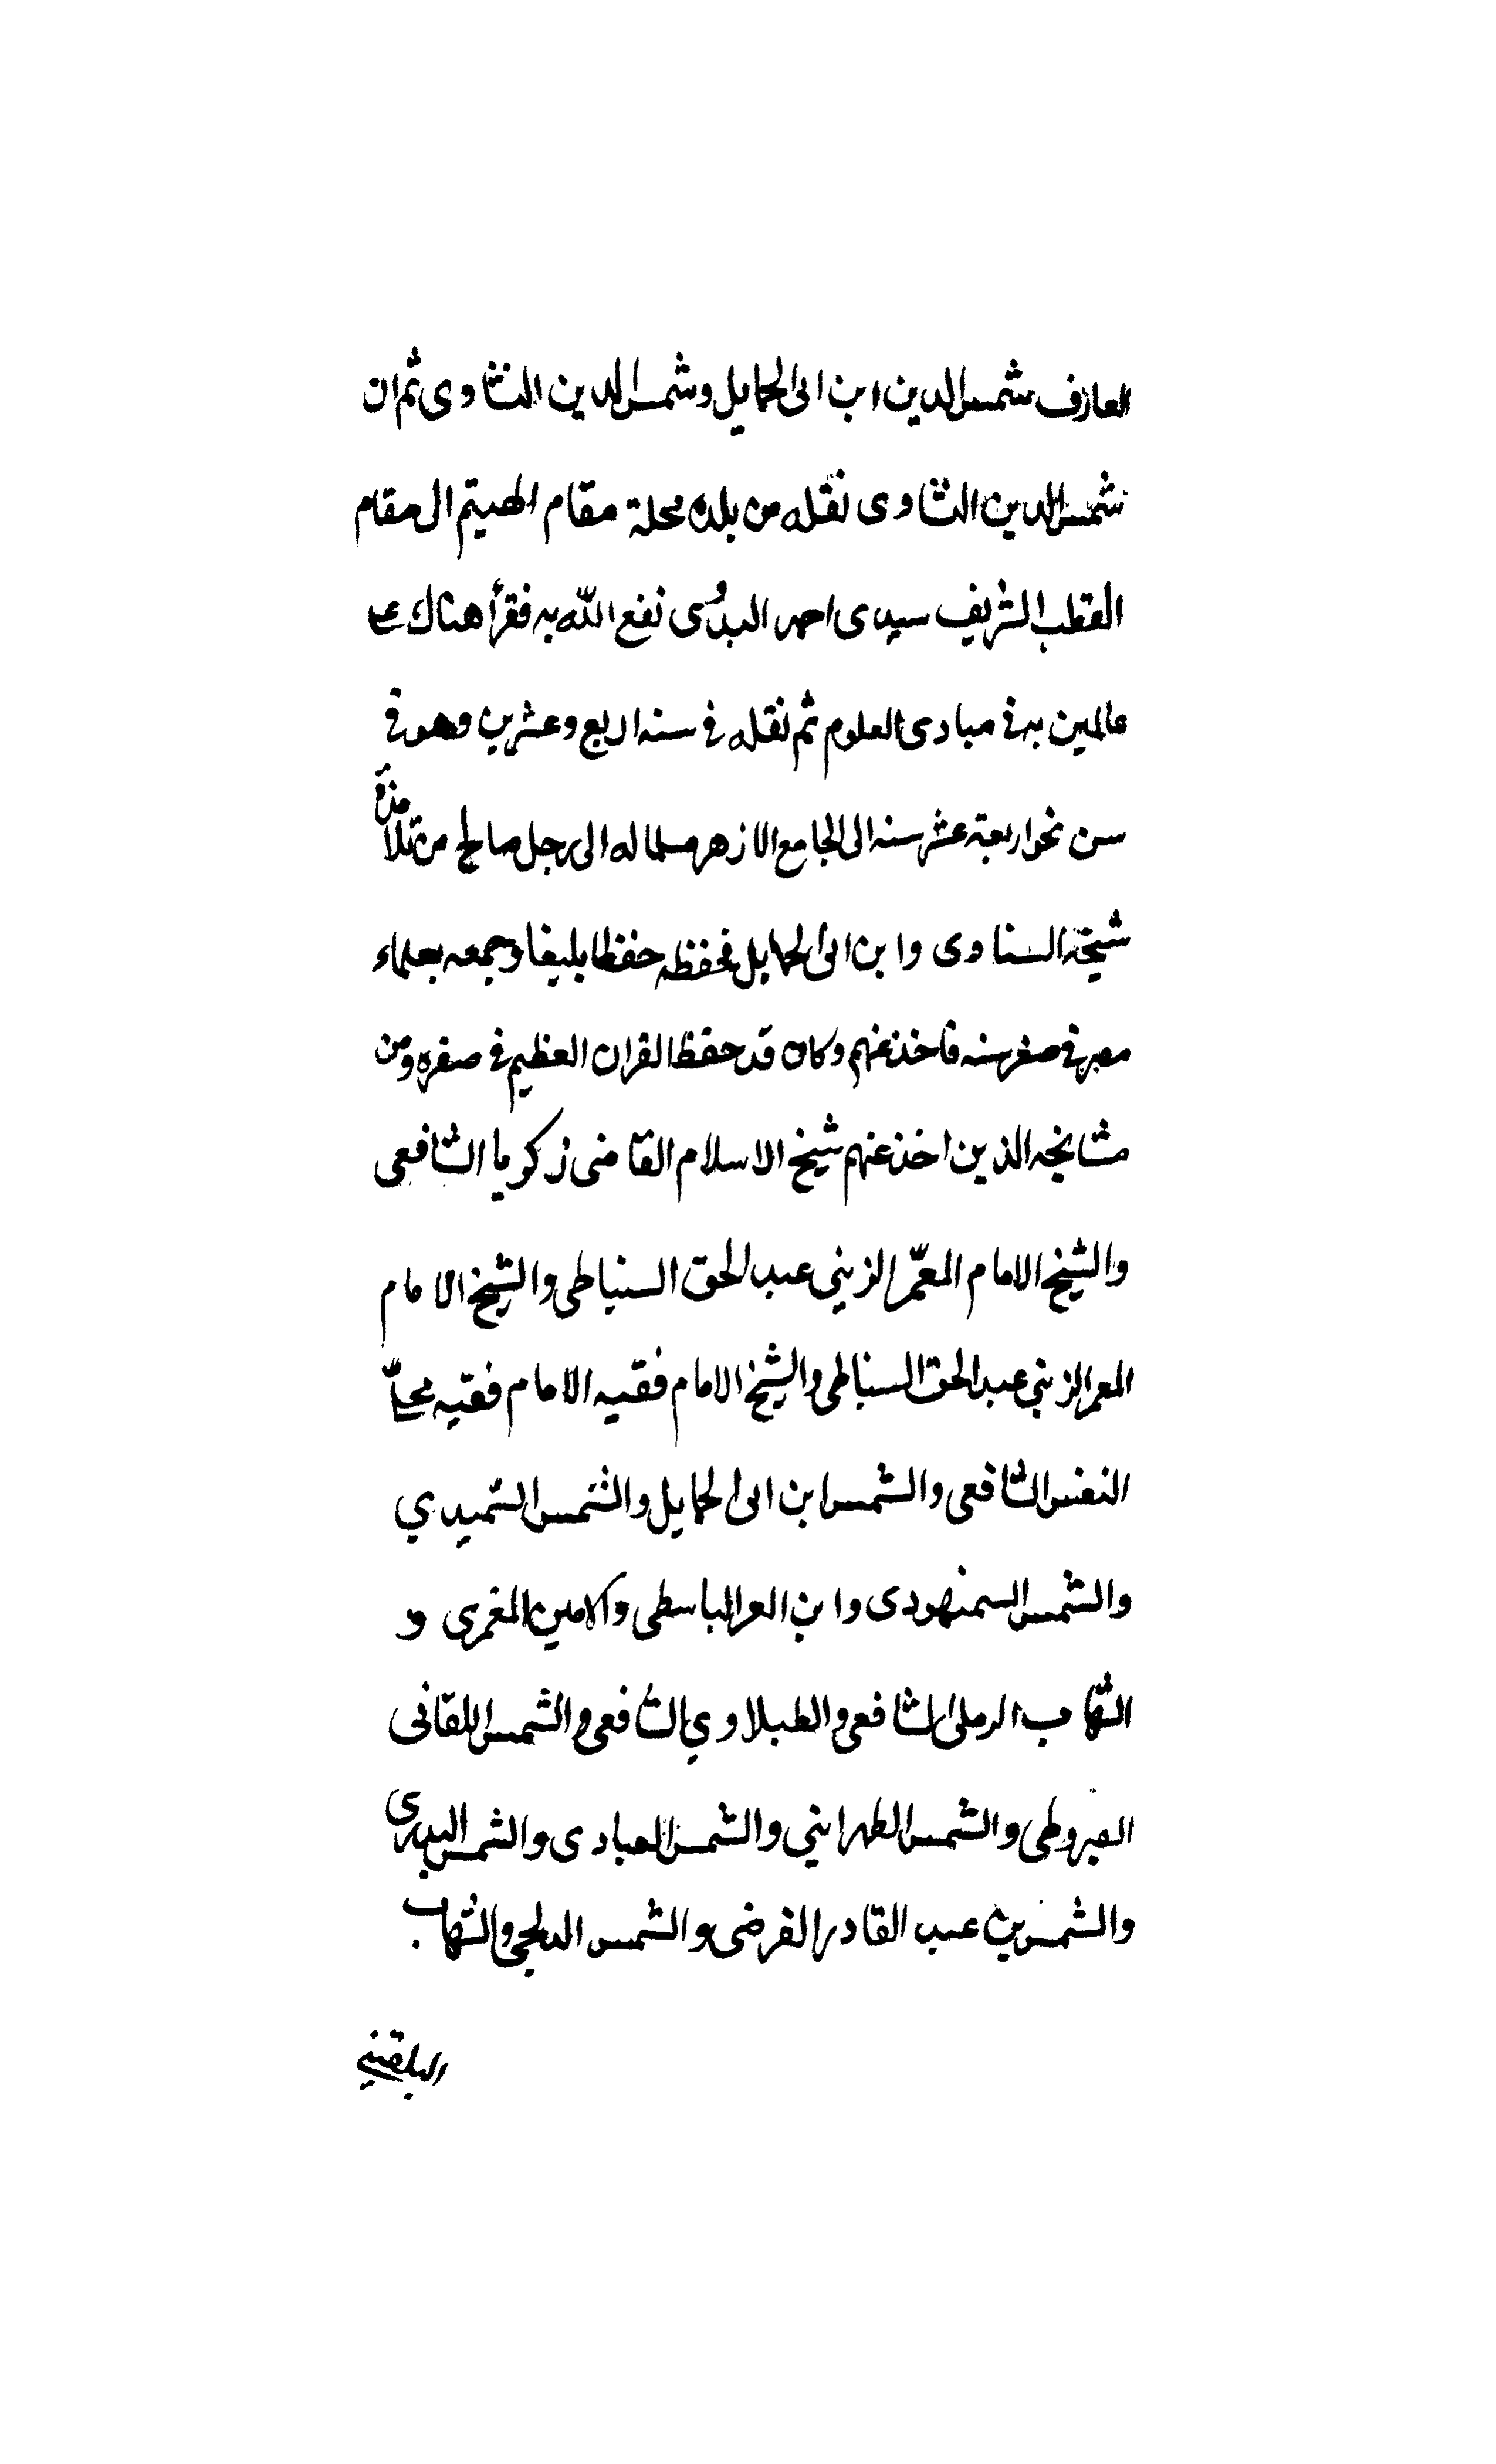 العارف شمس الدين ابن ابى الحمايل وشمس الدين الشناوى ثم ان
شمس الدين الشناوى نقله من بلده محلة مقام الهيتم الى مقام
القطب الشريف سيدى احمد البدوى نفع الله به فقرأ هناك على
عالمين به فى مبادى العلوم ثم نقله فى سنه اربع وعشرين وهو فى
سن نحو اربعة عشر سنه الى الجامع الازهر مسلما له الى رجل صالح من تلامذة
شيخه السناوى وابن ابى الحمايل فحفظه حفظا بليغا وجمعه بعلماء
مصر فى صغر سنه فاخذ عنهم وكان قد حفظ القران العظيم فى صغره ومن
مشايخه الذين اخذ عنهم شيخ الاسلام القاضى زكريا الشافعى
والشيخ الامام المعمّر الزينى عبد الحق السنباطى والشيخ الامام
المعمر الزينى عبد الحق السنباطى والشيخ الامام فقيه الامام فقيه مجلّى
النفس الشافعى والشمس ابن ابى الحمايل والشمس المشهدي
والشمس السمنهودى وابن العز الباسطى والامين الغمرى و
الشهاب الرملى الشافعى والطبلاوي الشافعى والشمس اللقانى
الضيروطى والشمس الطهراينى والشمس العبادى والشمس البدرى
والشمس بن عبد القادر الفرضى والشمس الدلجى والشهاب
البلقينى